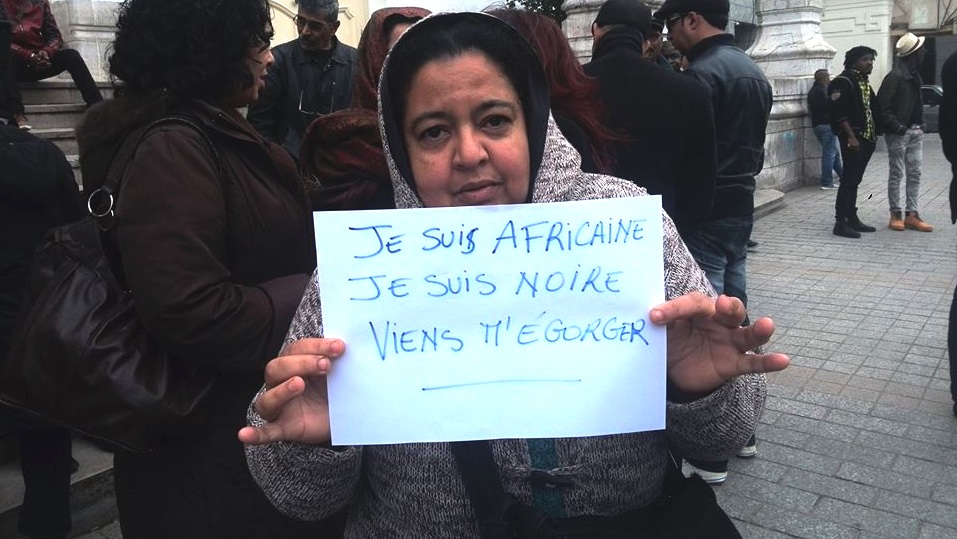 JE SUIS AFRICAINE
JE SUIS NOIRE
VIENS M'ÉGORGER